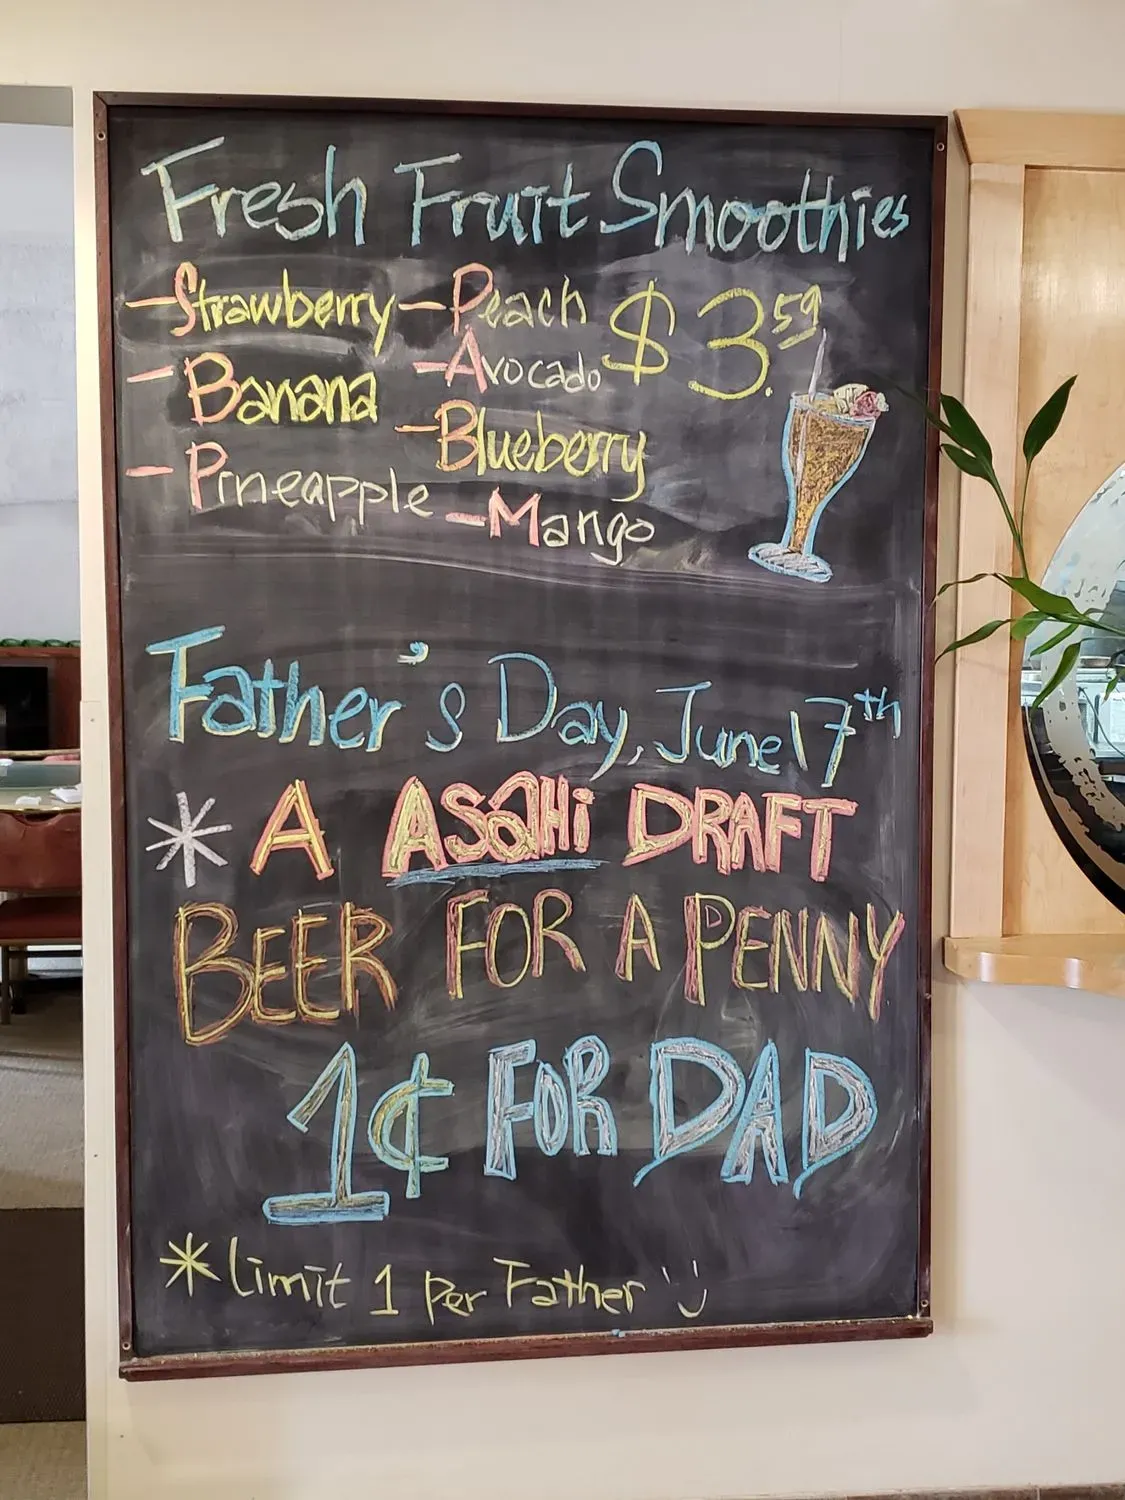 Fresh Fruit Smoothies
- Strawberry - Peach $3.59
- Banana - Avocado
- Pineapple - Blueberry
- Mango
Father's Day, June 17th
* A ASAHi DRAFT
BEER FOR A PENNY
1¢ FOR DAD
* limit 1 per Father :)